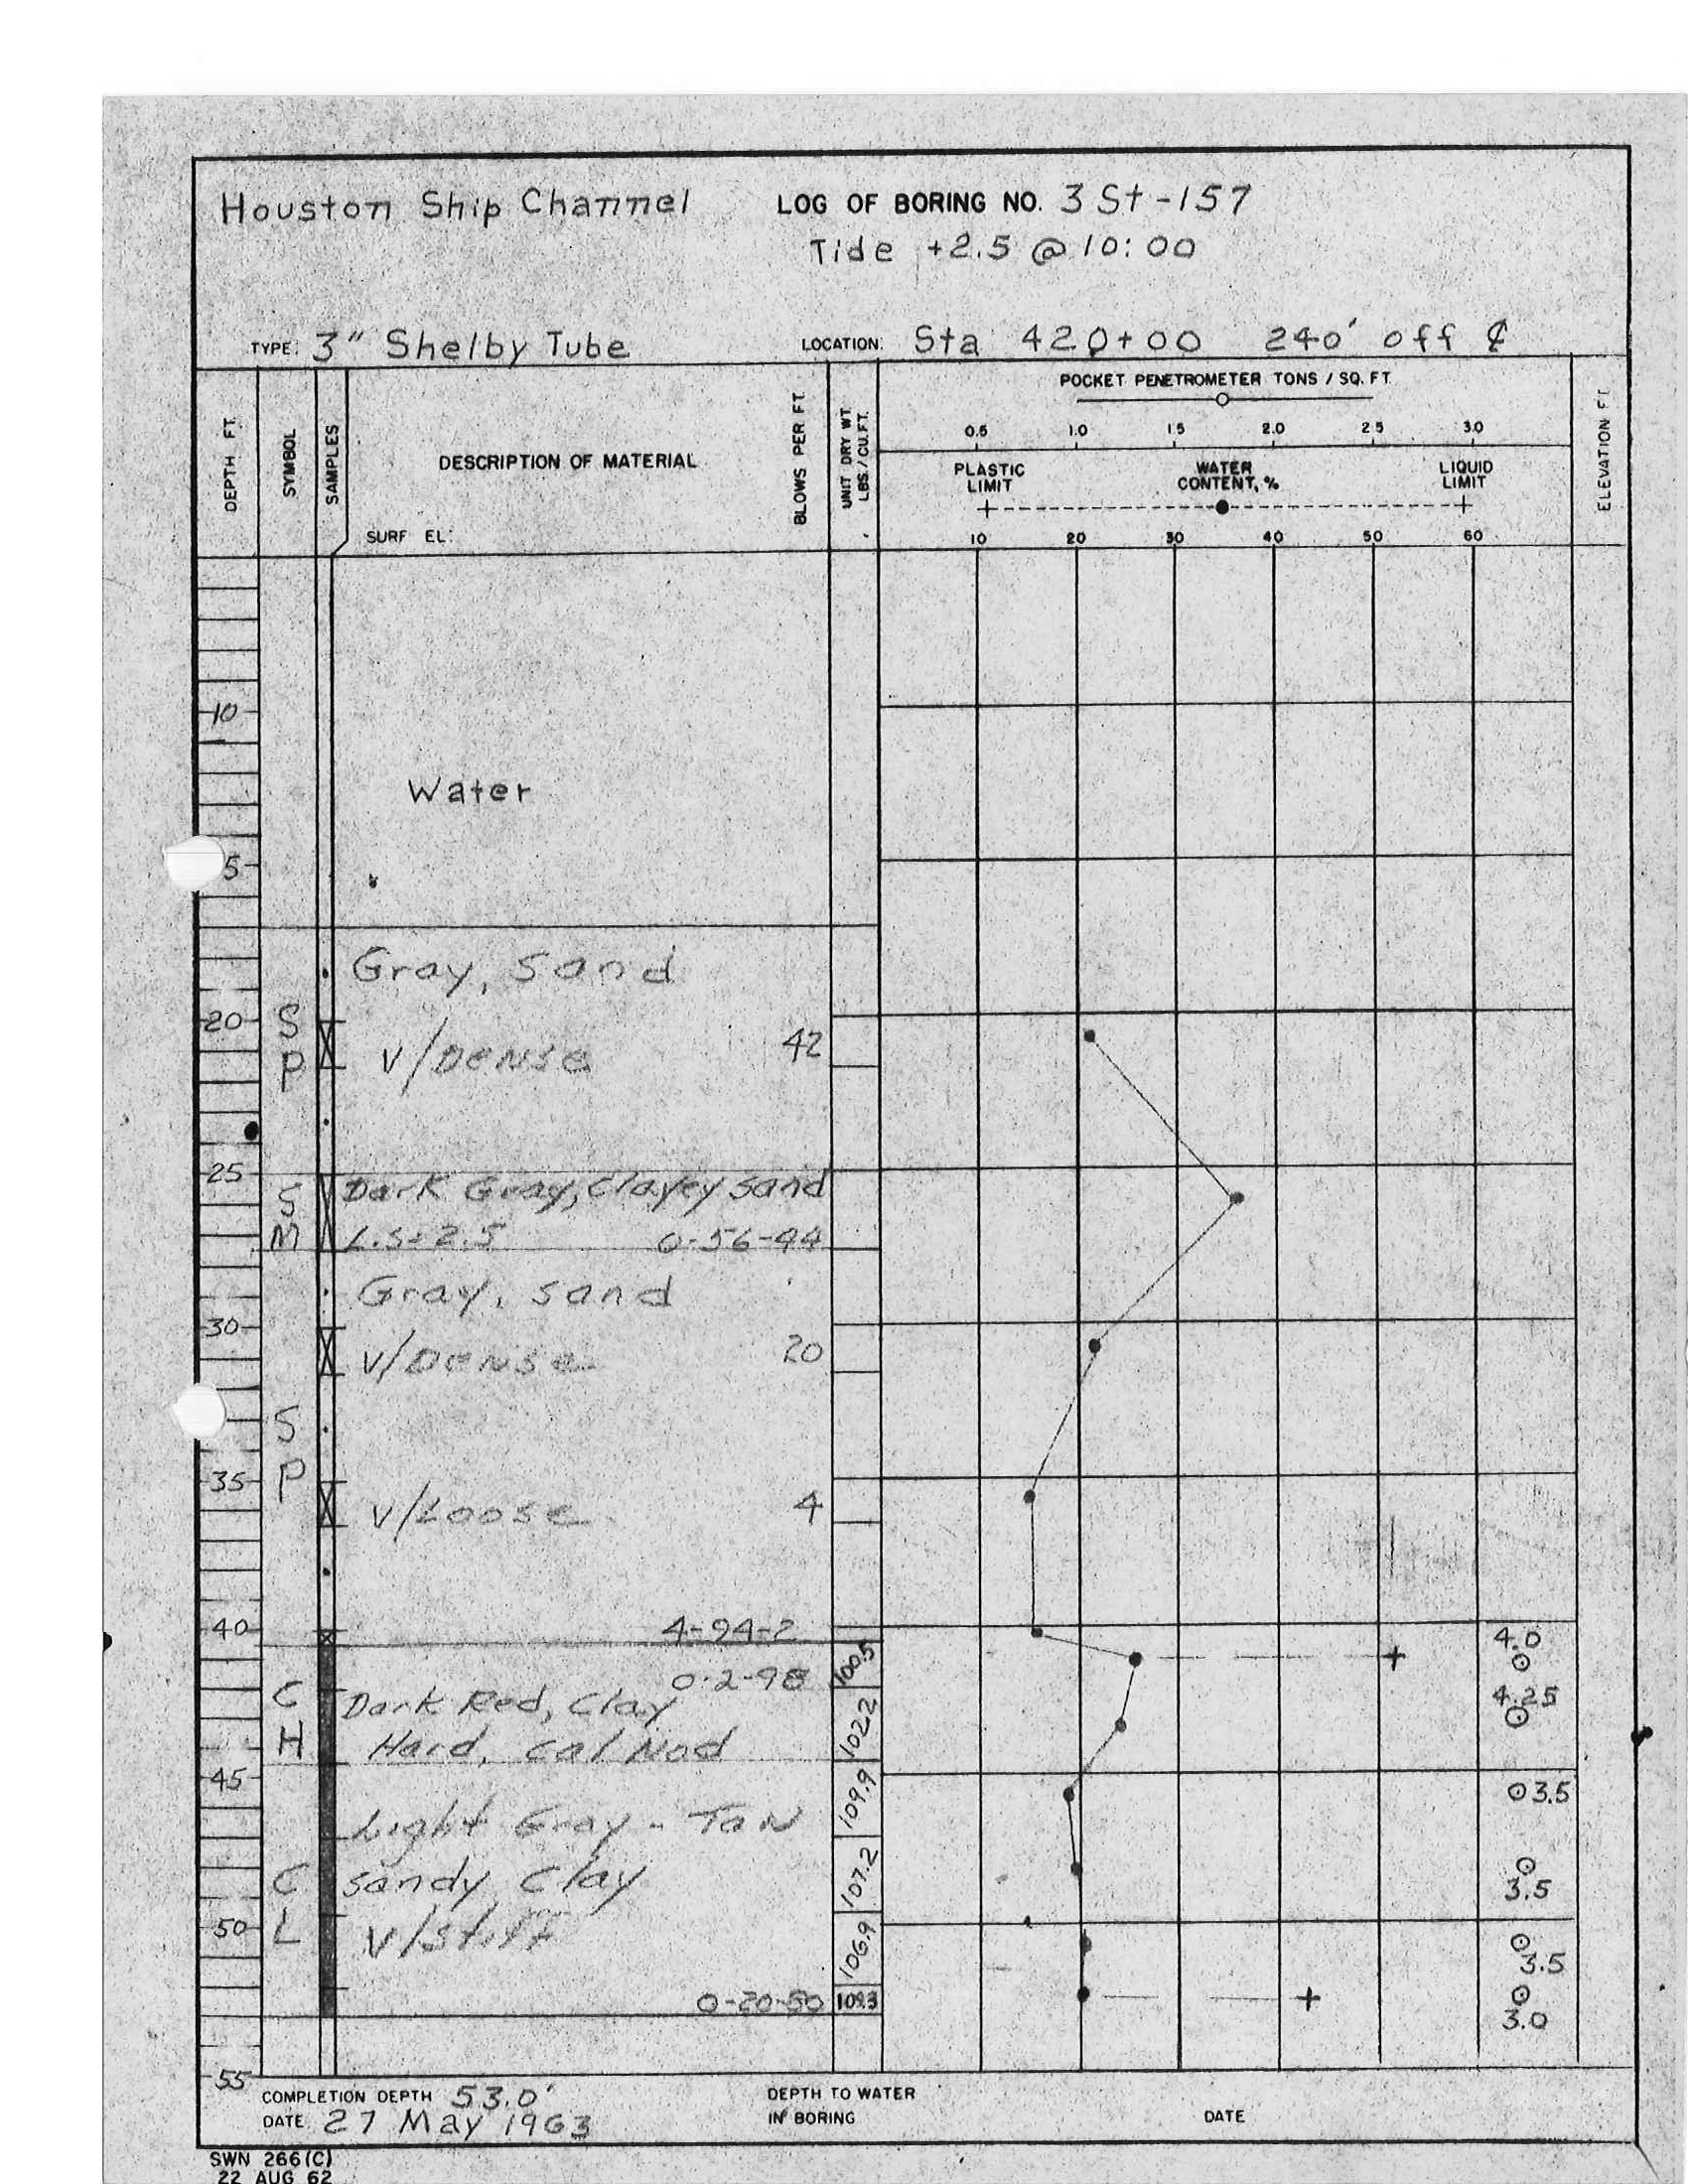 Houston Ship Channel LOG OF BORING NO. 3 St-157
Tide +2.5 @ 10:00
TYPE: 3" Shelby Tube LOCATION: Sta 420+00 240' off ℄
POCKET PENETROMETER TONS / SQ. FT.
0.5 1.0 1.5 2.0 2.5 3.0
DEPTH FT. SYMBOL SAMPLES DESCRIPTION OF MATERIAL BLOWS PER FT. UNIT DRY WT. LBS./CU.FT. ELEVATION FT.
PLASTIC LIMIT WATER CONTENT, % LIQUID LIMIT
SURF EL:
10 20 30 40 50 60
10
Water
5
Gray, Sand
20 S
P V/DENSE 42
25
S Dark Gray, Clayey Sand
M L.S=2.5 0-56-44
Gray, sand
30
V/DENSE 20
S
35 P
V/Loose 4
40 4-94-2
4.0
100.5
0-2-98
C Dark Red, Clay 4.25
H Hard, Cal Nod 102.2
45
109.9 3.5
Light Gray - Tan
C Sandy Clay 107.2 3.5
50 L V/Stiff
106.9 3.5
0-20-80 109.3
3.0
55
COMPLETION DEPTH 53.0' DEPTH TO WATER
DATE 27 May 1963 IN BORING DATE
SWN 266(C)
22 AUG 62